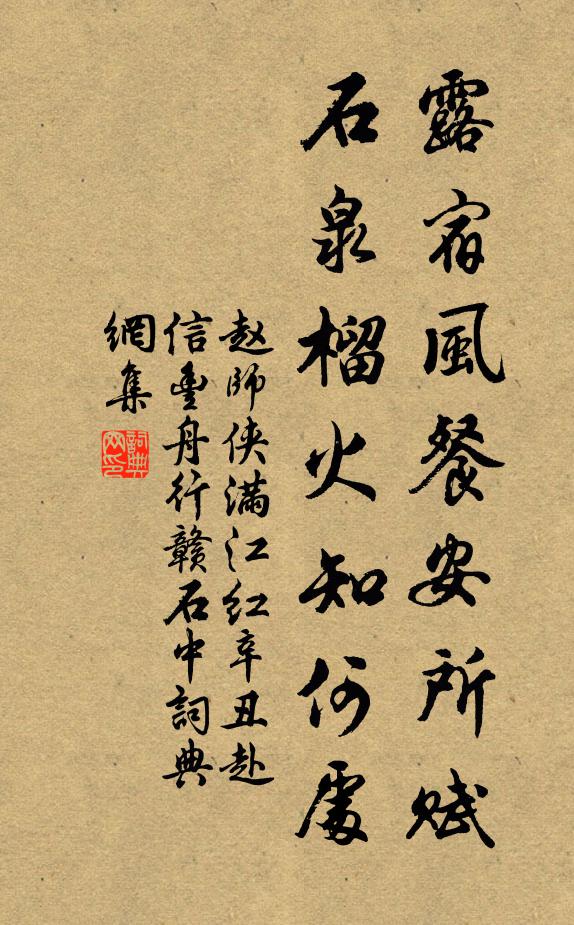 露宿風餐安所赋
石泉榴火知何處
赵師侠滿江红辛丑赴
信豐舟行贛石中詞典
網集
詞典
网印